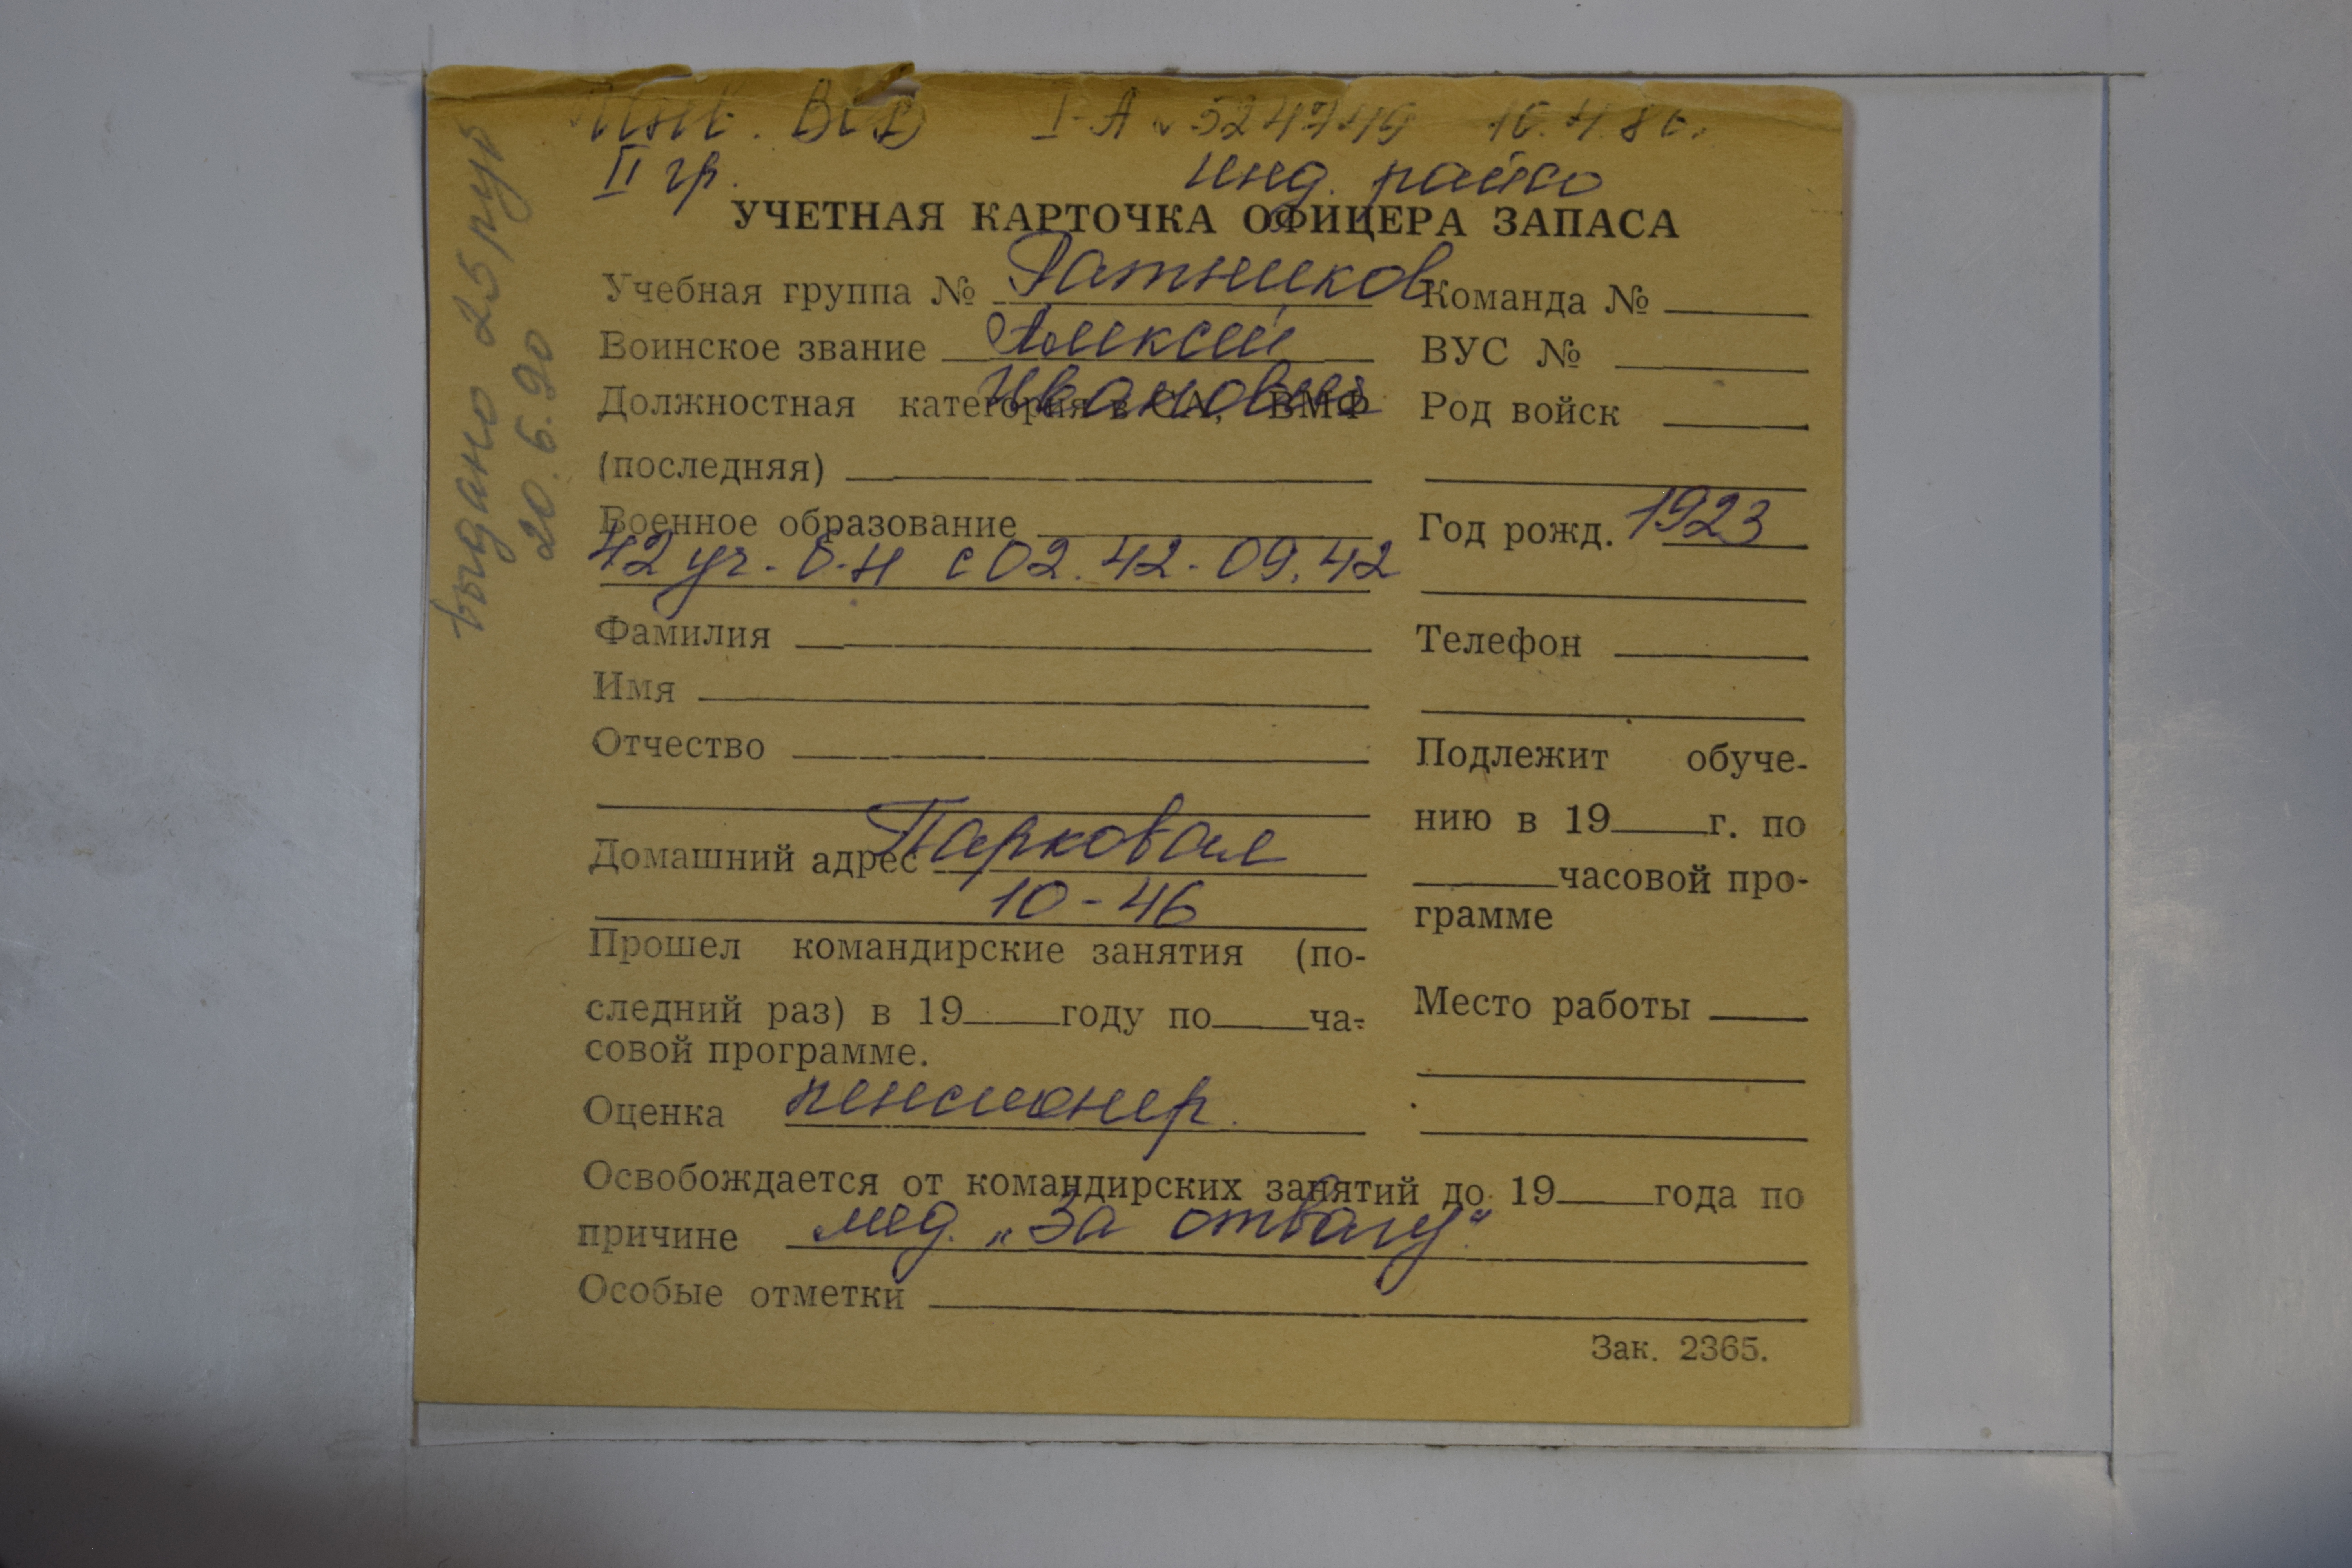 Инв. ВОВ I-А № 524749 16.4.86.
II гр. инд. райсо
выдано 25 руб
20.6.90
УЧЕТНАЯ КАРТОЧКА ОФИЦЕРА ЗАПАСА
Учебная группа № Ратников Команда №
Воинское звание Алексей ВУС №
Должностная категория в СА, ВМФ Иванович Род войск
(последняя)
Военное образование Год рожд. 1923
42 уч. б-н с 02.42-09.42
Фамилия Телефон
Имя
Отчество Подлежит обуче-
нию в 19 г. по
Домашний адрес Парковая
10-46 часовой про-
грамме
Прошел командирские занятия (по-
следний раз) в 19 году по ча- Место работы
совой программе.
Оценка пенсионер.
Освобождается от командирских занятий до 19 года по
причине мед. „За отвагу"
Особые отметки
Зак. 2365.